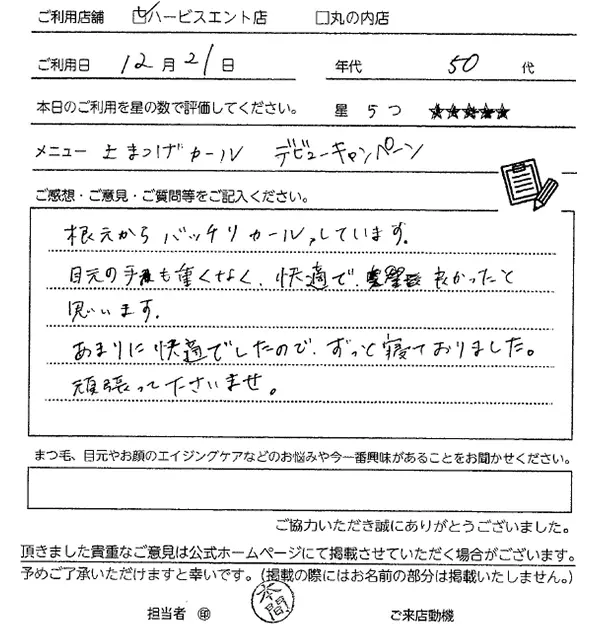 ご利用店舗 ☑ハービスエント店 □丸の内店
ご利用日 12月21日 年代 50 代
本日のご利用を星の数で評価してください。 星 5つ ★★★★★
メニュー 上まつげカール デビューキャンペーン
ご感想・ご意見・ご質問等をご記入ください。
根元からバッチリカールしています。
目元の手も重くなく、快適で、良かったと
思います。
あまりに快適でしたので、ずっと寝ておりました。
頑張ってくださいませ。
まつ毛、目元やお顔のエイジングケアなどのお悩みや今一番興味があることをお聞かせください。
ご協力いただき誠にありがとうございました。
頂きました貴重なご意見は公式ホームページにて掲載させていただく場合がございます。
予めご了承いただけますと幸いです。（掲載の際にはお名前の部分は掲載いたしません。）
担当者 ㊞ 本間 ご来店動機